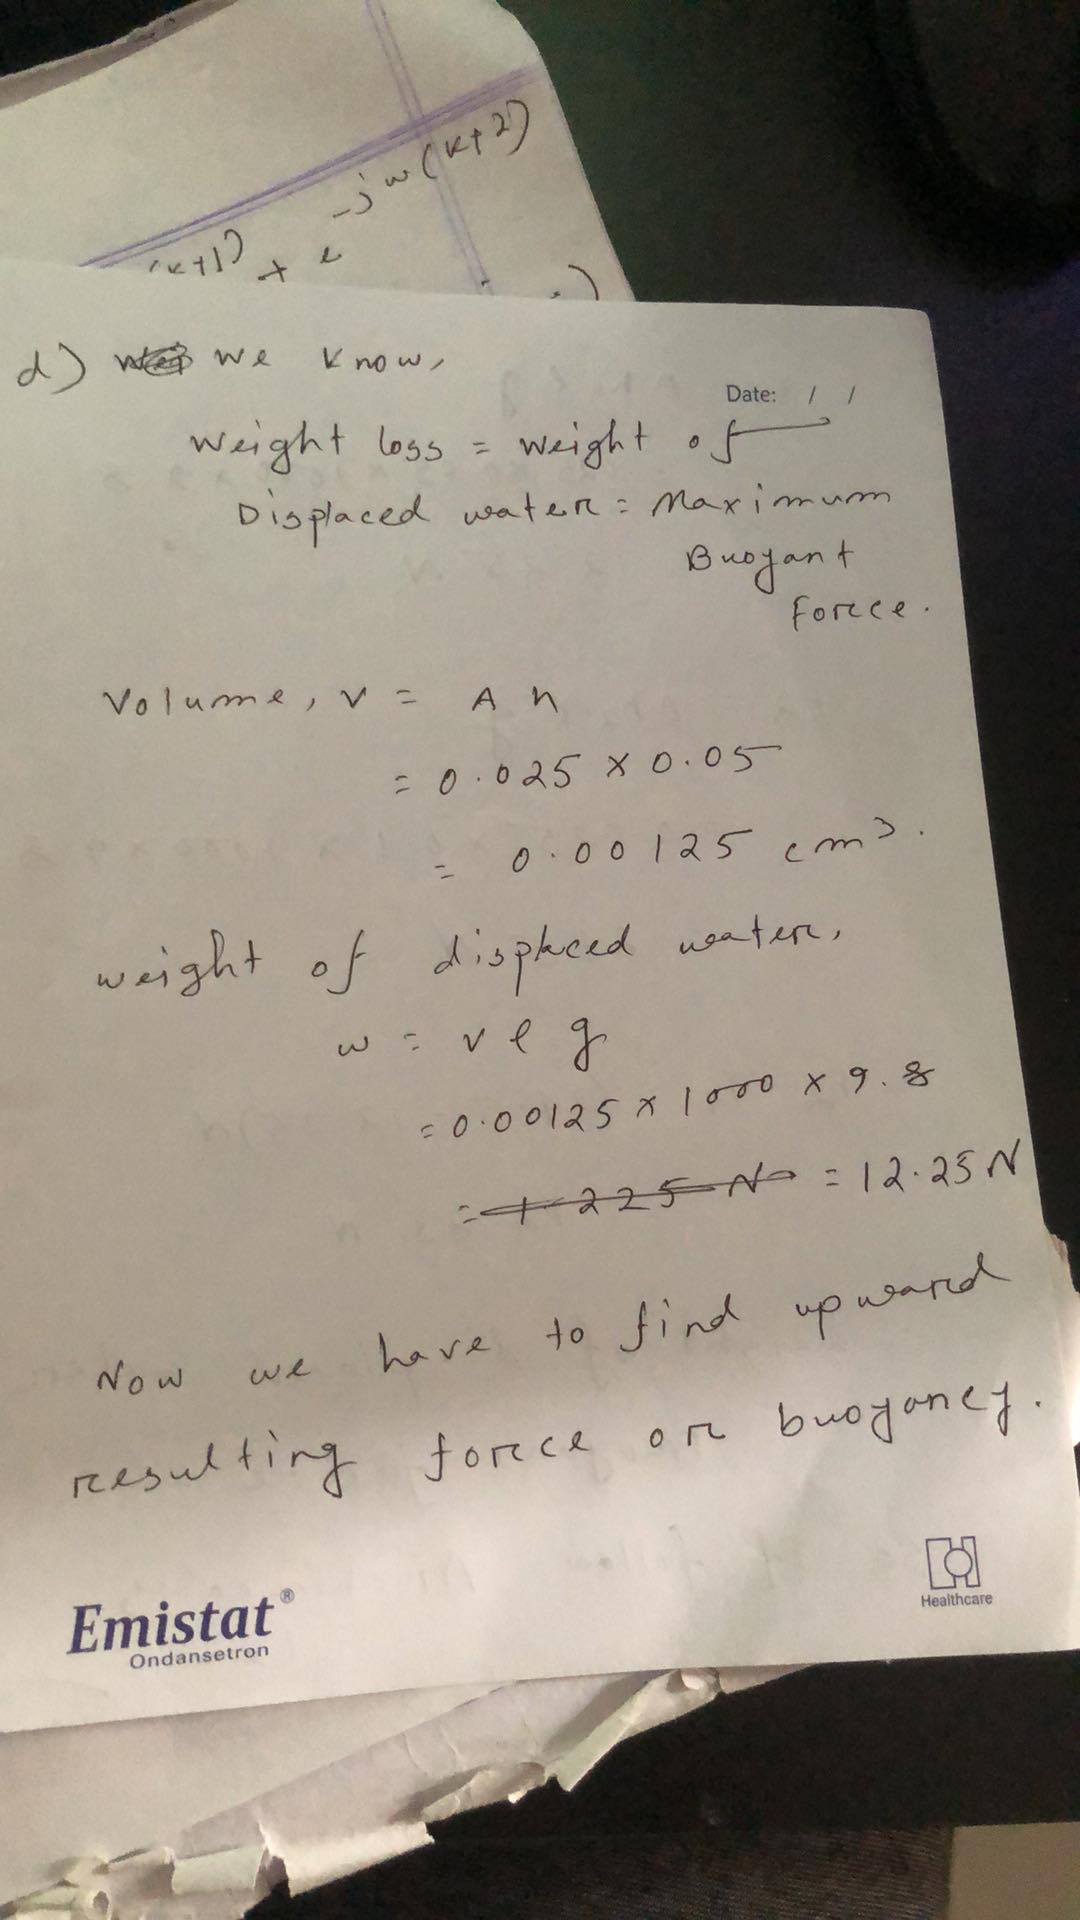 -jw(k+2)
(k+1) + e
)
d) We know,
Date: / /
Weight loss = weight of
Displaced water = Maximum
Buoyant
Force.
Volume, V = A h
= 0.025 × 0.05
= 0.00125 cm³.
weight of displaced water,
w = v ρ g
= 0.00125 × 1000 × 9.8
= 1.225 N = 12.25 N
Now we have to find upward
resulting force or buoyancy.
Emistat®
Ondansetron
Healthcare